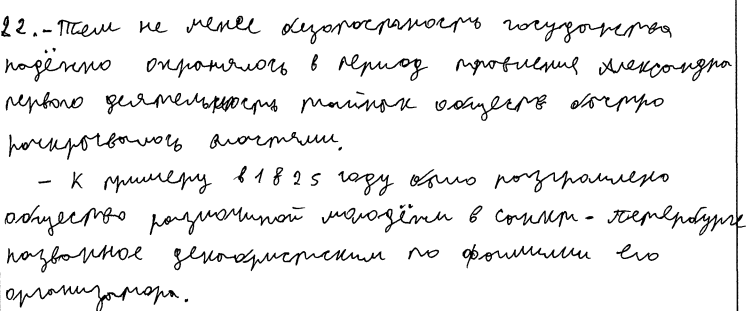 22. - Тем не менее безопасность государства
надёжно охранялось в период правления Александра
первого деятельность тайных обществ быстро
раскрывалось властями.
- К примеру в 1825 году было разгромлено
общество разночиной молодёжи в санкт-петербурге
названное декабристским по фамилии его
организатора.